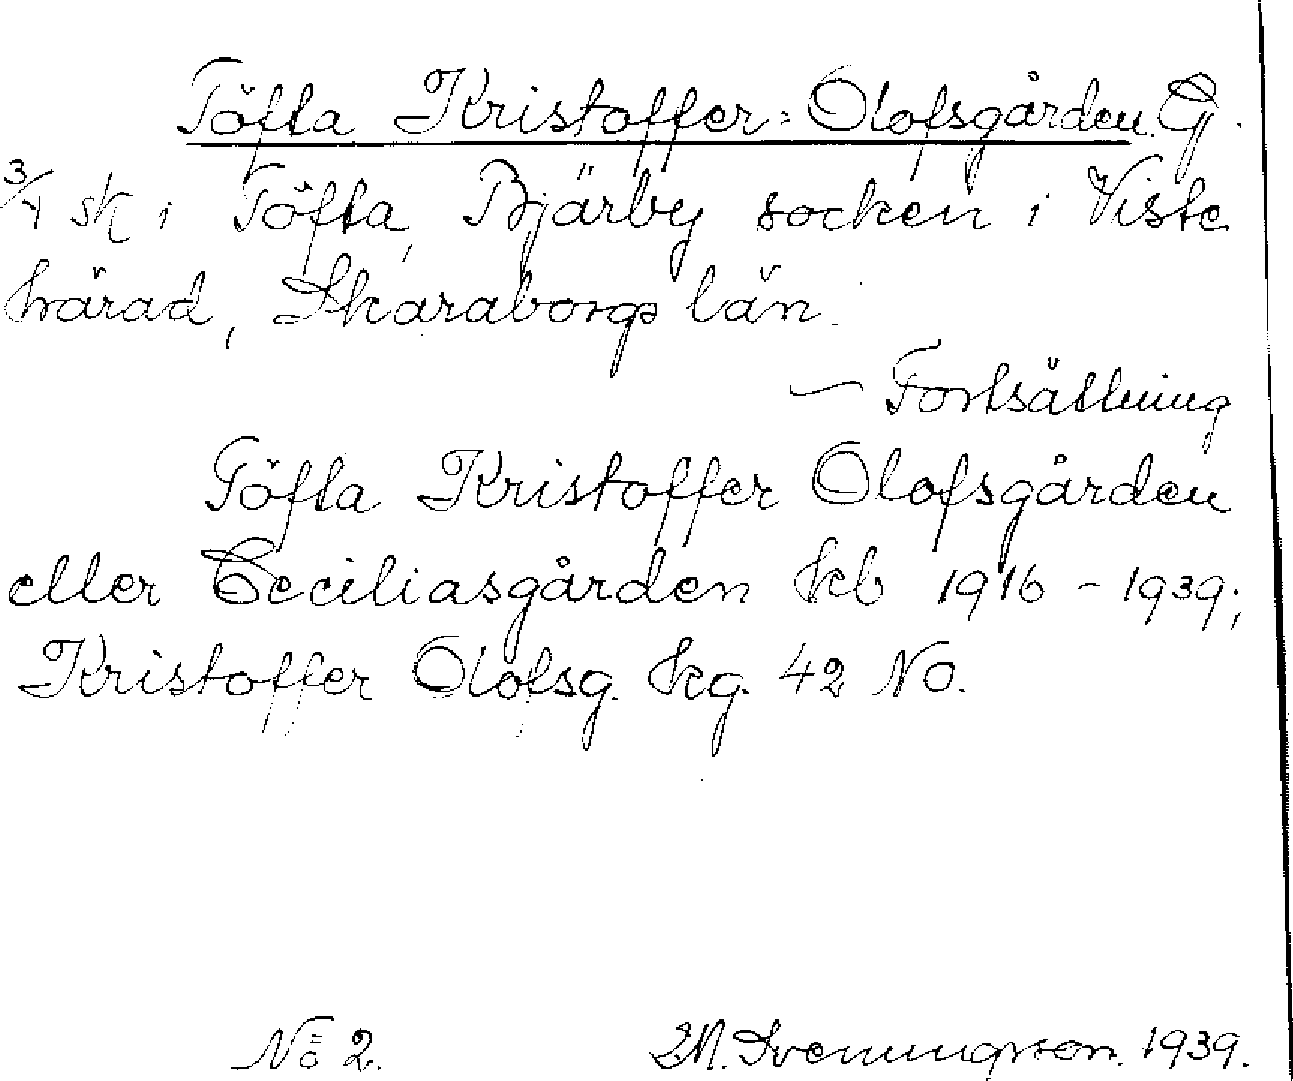 Töfta Kristoffer-Olofsgården G.
3/4 sk i Töfta, Bjärby socken i Viste
härad, Skaraborgs län.
— Fortsättning
Töfta Kristoffer Olofsgården
eller Ceciliasgården kb 1916 - 1939;
Kristoffer Olofsg. kg. 42 No.
No 2. M. Sveningson. 1939.